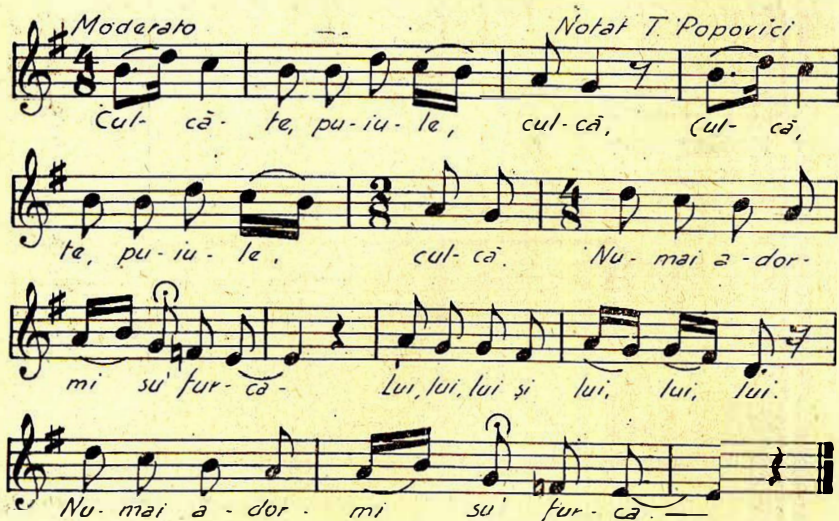 Moderato Notat T. Popovici
4/8
Cul- că- te, pu-iu-le, cul-că, Cul- că,
2/8 4/8
te, pu-iu-le, cul-că. Nu-mai a-dor-
mi su' fur-că- Lui, lui, lui și lui, lui, lui.
Nu-mai a-dor- mi su' fur-că.